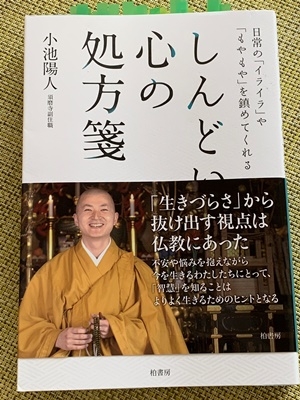 日常の「イライラ」や
「もやもや」を鎮めてくれる
しんどい
心の
処方箋
小池陽人
須磨寺副住職
「生きづらさ」から
抜け出す視点は
仏教にあった
不安や悩みを抱えながら
今を生きるわたしたちにとって、
「智慧」を知ることは
よりよく生きるためのヒントとなる
柏書房
柏書房